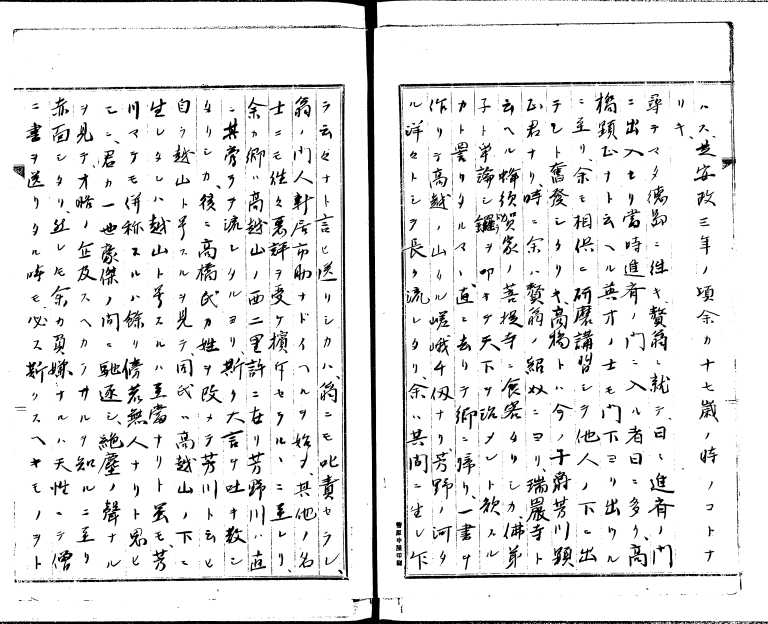 ハス、是安政三年ノ頃余カ十七歳ノ時ノコトナ
リキ、
尋テマタ徳島ニ往キ、贅翁ニ就テ、日々進斉ノ門
ニ出入セリ當時進斉ノ門ニ入ル者日ニ多ク、高
橋顕正ナト云ヘル英才ノ士モ門下ヨリ出タル
ニ至リ、余モ相倶ニ研磨講習シテ他人ノ下ニ出
テシト奮發シタリキ、高橋トハ今ノ子爵芳川顕
正君ナリ時ニ余ハ贅翁ノ紹介ニヨリ、瑞巖寺ト
云ヘル蜂須賀家ノ菩提寺ニ食客タリシカ、佛弟
子ト宗論シ鑼ヲ叩キテ天下ヲ治メント欲スル
カト詈リタルマヽ直ニ去リテ郷ニ帰リ、一書ヲ
作リテ高越ノ山ハ嵯峨千仭ナリ芳野ノ河ハ
ル洋々トシテ長ク流レタリ、余ハ其間ニ生レ下
ラ云々ナト言ヒ送リシカハ、翁ニモ叱責セラレ、
翁ノ門人新居市助ナドイヘルヲ始メ其他ノ名
士ニモ往々裏評ヲ受ケ擯斥セラルヽニ至レリ、
余カ郷ハ高越山ノ西二里許ニ在リ芳野川ハ直
ニ其傍ヲ流レタルヨリ、斯ク大言ヲ吐キ散シ
タリシカ、後ニ高橋氏カ姓ヲ改メテ芳川ト云ヒ
自ラ越山ト号スルヲ見テ、同氏ハ高越山ノ下ニ
生レタレハ越山ト号スルハ至當ナリト雖モ、芳
川マテモ併称スルハ餘リ傍若無人ナリト思ヒ
シニ、君カ一世豪傑ノ間ニ馳逐シ、絶塵ノ聲ナル
ヲ見テ、才略ノ企及スヘカラサルヲ知ルニ至リ
赤面シタリ然レモ余カ負嫌ナルハ天性ニテ僧
ニ書ヲ送リタル時モ必ス斯クスヘキモノヲト